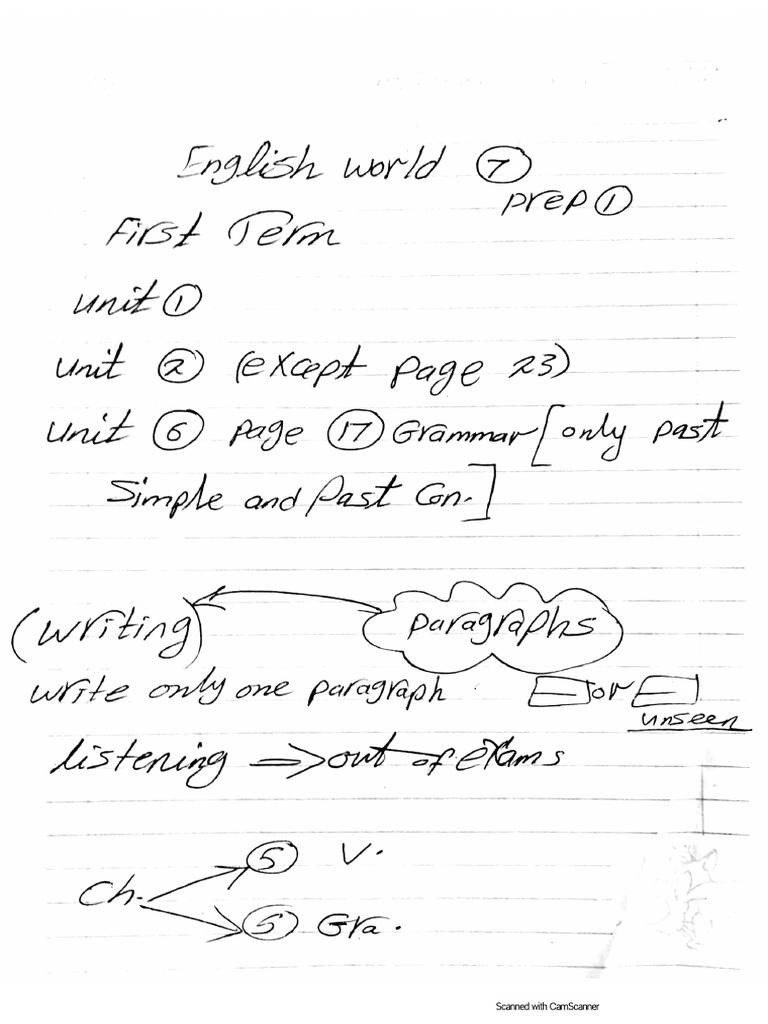 English world 7
prep 1
First Term
unit 1
unit 2 (except page 23)
unit 6 page 17 Grammar [only past
Simple and Past Con.]
(writing) paragraphs
write only one paragraph or
unseen
listening ⇒ out of exams
5 V.
Ch.
5 Gra.
Scanned with CamScanner